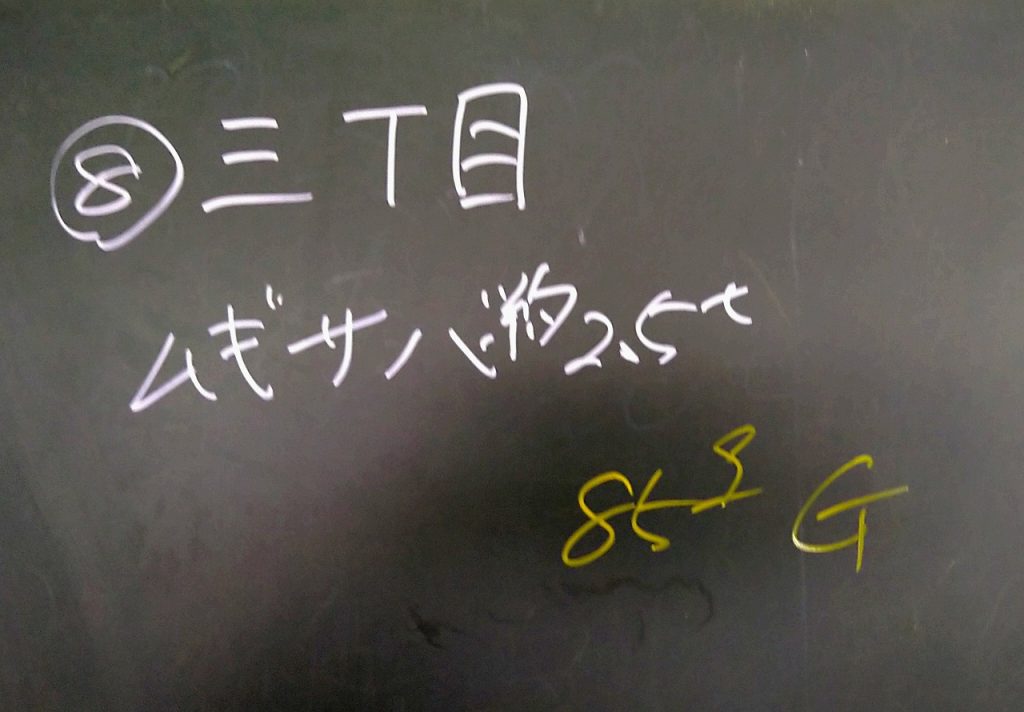 ⑧三丁目
ムギサバ 2.5t
85 G